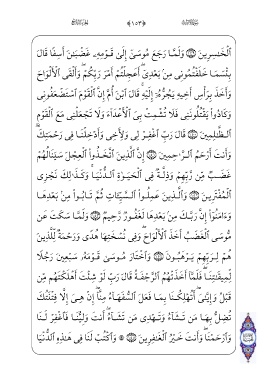 ٱلْخَٰسِرِينَ ۝ وَلَمَّا رَجَعَ مُوسَىٰٓ إِلَىٰ قَوْمِهِۦ غَضْبَٰنَ أَسِفًا قَالَ
بِئْسَمَا خَلَفْتُمُونِى مِنۢ بَعْدِىٓ ۖ أَعَجِلْتُمْ أَمْرَ رَبِّكُمْ ۖ وَأَلْقَى ٱلْأَلْوَاحَ
وَأَخَذَ بِرَأْسِ أَخِيهِ يَجُرُّهُۥٓ إِلَيْهِ ۚ قَالَ ٱبْنَ أُمَّ إِنَّ ٱلْقَوْمَ ٱسْتَضْعَفُونِى
وَكَادُوا۟ يَقْتُلُونَنِى فَلَا تُشْمِتْ بِىَ ٱلْأَعْدَآءَ وَلَا تَجْعَلْنِى مَعَ ٱلْقَوْمِ
ٱلظَّٰلِمِينَ ۝ قَالَ رَبِّ ٱغْفِرْ لِى وَلِأَخِى وَأَدْخِلْنَا فِى رَحْمَتِكَ ۖ
وَأَنتَ أَرْحَمُ ٱلرَّٰحِمِينَ ۝ إِنَّ ٱلَّذِينَ ٱتَّخَذُوا۟ ٱلْعِجْلَ سَيَنَالُهُمْ
غَضَبٌ مِّن رَّبِّهِمْ وَذِلَّةٌ فِى ٱلْحَيَوٰةِ ٱلدُّنْيَا ۚ وَكَذَٰلِكَ نَجْزِى
ٱلْمُفْتَرِينَ ۝ وَٱلَّذِينَ عَمِلُوا۟ ٱلسَّيِّـَٔاتِ ثُمَّ تَابُوا۟ مِنۢ بَعْدِهَا
وَءَامَنُوٓا۟ إِنَّ رَبَّكَ مِنۢ بَعْدِهَا لَغَفُورٌ رَّحِيمٌ ۝ وَلَمَّا سَكَتَ عَن
مُّوسَى ٱلْغَضَبُ أَخَذَ ٱلْأَلْوَاحَ ۖ وَفِى نُسْخَتِهَا هُدًى وَرَحْمَةٌ لِّلَّذِينَ
هُمْ لِرَبِّهِمْ يَرْهَبُونَ ۝ وَٱخْتَارَ مُوسَىٰ قَوْمَهُۥ سَبْعِينَ رَجُلًا
لِّمِيقَٰتِنَا ۖ فَلَمَّآ أَخَذَتْهُمُ ٱلرَّجْفَةُ قَالَ رَبِّ لَوْ شِئْتَ أَهْلَكْتَهُم مِّن
قَبْلُ وَإِيَّٰىَ ۖ أَتُهْلِكُنَا بِمَا فَعَلَ ٱلسُّفَهَآءُ مِنَّآ ۖ إِنْ هِىَ إِلَّا فِتْنَتُكَ
تُضِلُّ بِهَا مَن تَشَآءُ وَتَهْدِى مَن تَشَآءُ ۖ أَنتَ وَلِيُّنَا فَٱغْفِرْ لَنَا
وَٱرْحَمْنَا ۖ وَأَنتَ خَيْرُ ٱلْغَٰفِرِينَ ۝ ۞ وَٱكْتُبْ لَنَا فِى هَٰذِهِ ٱلدُّنْيَا